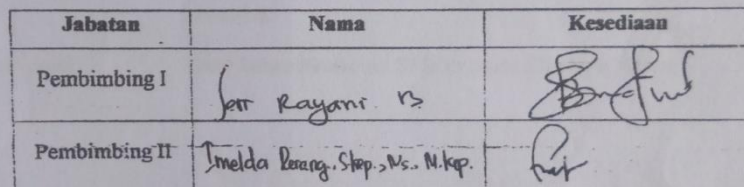 Jabatan Nama Kesediaan
Pembimbing I Rayani B
Pembimbing II Imelda S.kep., Ns., M.kep.